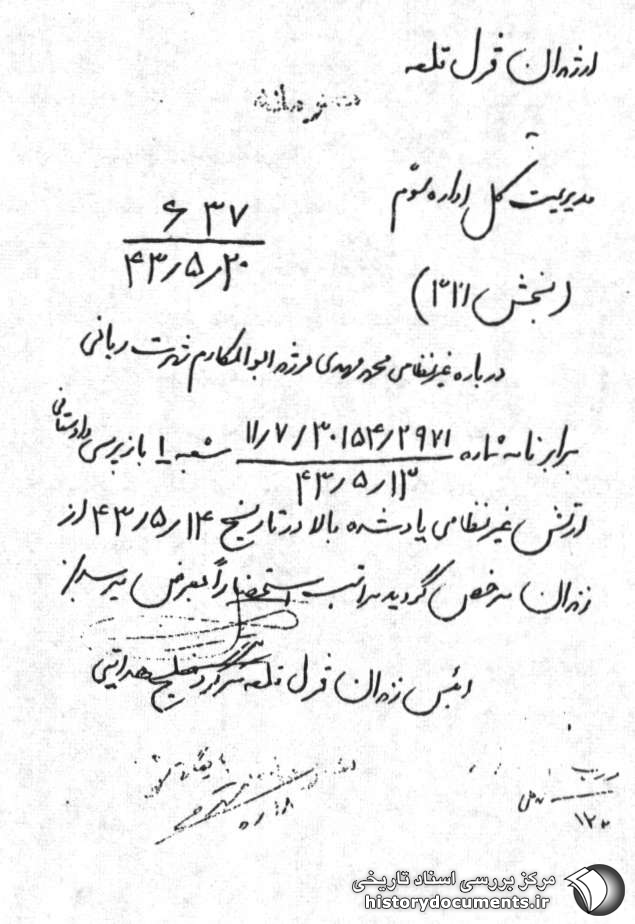 از زندان قزل قلعه
محرمانه
مدیریت کل اداره سوم
۶۳۷
۴۳/۵/۲۰
(بخش ۳۲۱)
درباره غیرنظامی محمد مهدی فرزند ابوالمکارم شهرت ربانی
برابر نامه شماره ۱۱/۷/۳۰۱۵۴/۲۹۷۱ شعبه ۱ بازپرسی دادستانی
۴۳/۵/۱۳
ارتش غیرنظامی یاد شده بالا در تاریخ ۴۳/۵/۱۴ از
زندان مرخص گردید مراتب استحضاراً بعرض میرسد
رئیس زندان قزل قلعه سرگرد هدایتی
مرکز بررسی اسناد تاریخی
historydocuments.ir